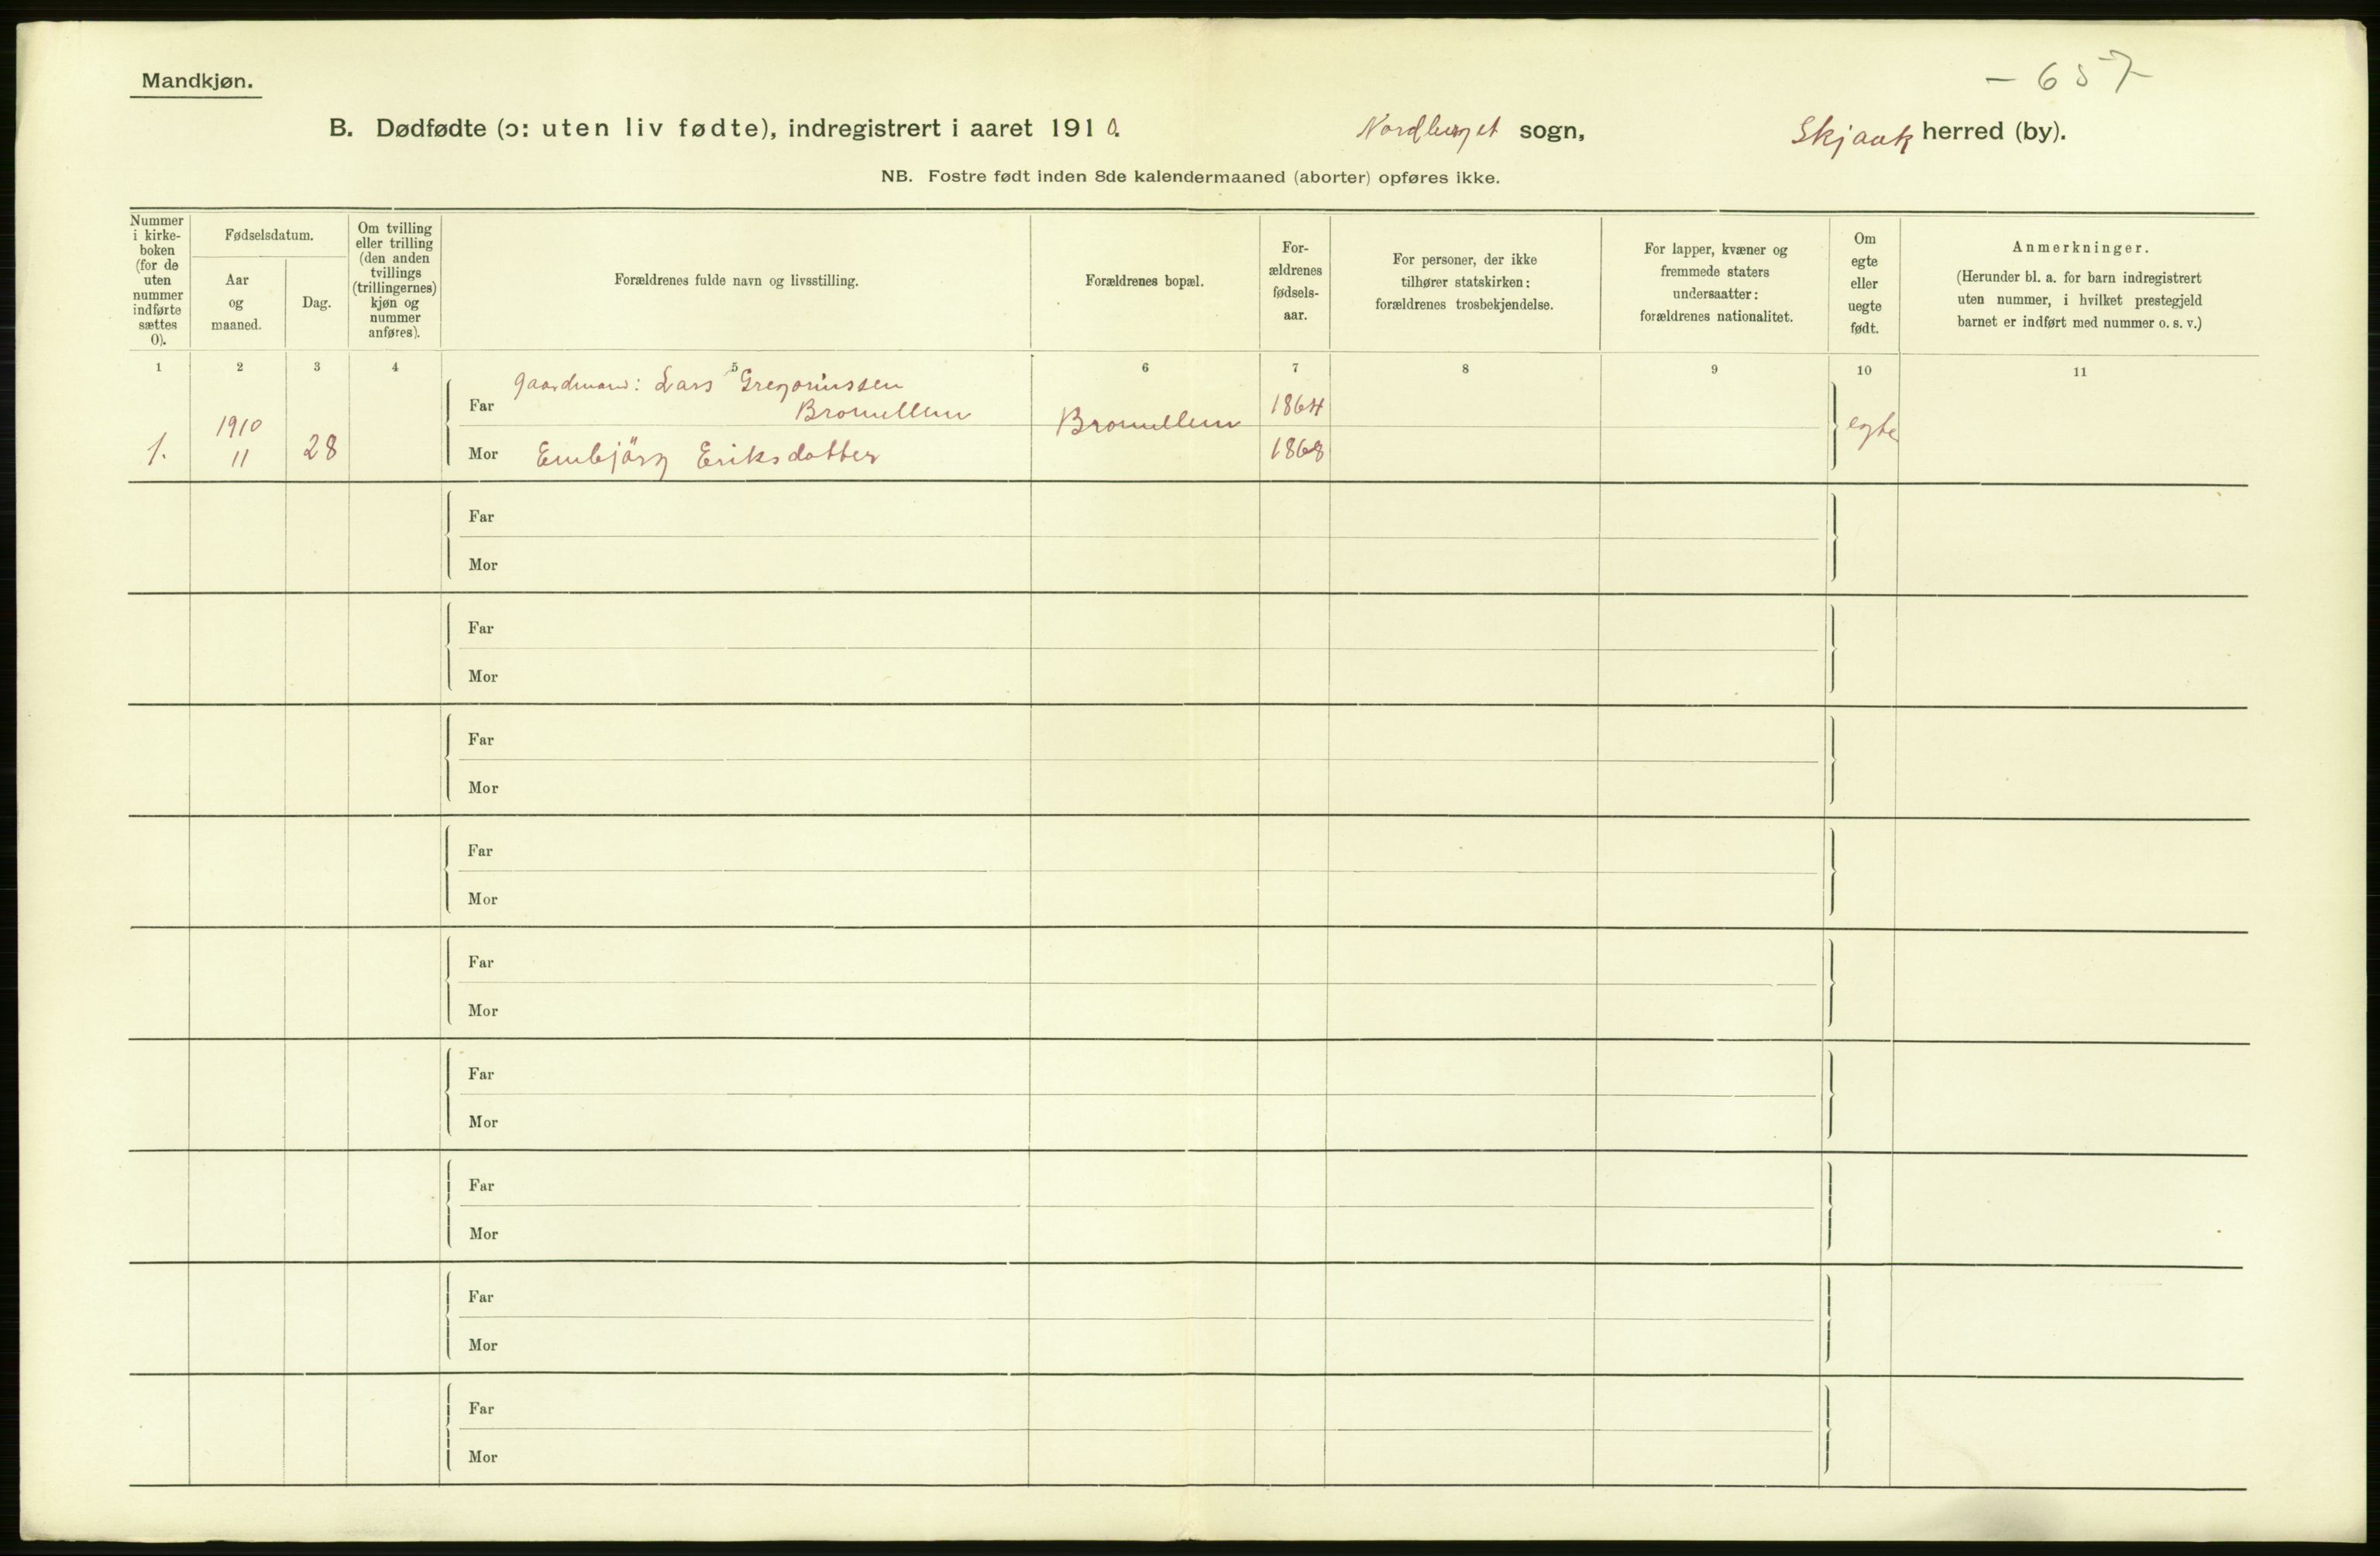 Mandkjøn.
- 657
B. Dødfødte (ɔ: uten liv fødte), indregistrert i aaret 1910. Nordberget sogn, Skjaak herred (by).
NB. Fostre født inden 8de kalendermaaned (aborter) opføres ikke.
Nummer
i kirke-
boken
(for de
uten
nummer
indførte
sættes
0).
Fødselsdatum.
Aar
og
maaned.
Dag.
Om tvilling
eller trilling
(den anden
tvillings
(trillingernes)
kjøn og
nummer
anføres).
Forældrenes fulde navn og livsstilling.
Forældrenes bopæl.
For-
ældrenes
fødsels-
aar.
For personer, der ikke
tilhører statskirken:
forældrenes trosbekjendelse.
For lapper, kvæner og
fremmede staters
undersaatter:
forældrenes nationalitet.
Om
egte
eller
uegte
født.
Anmerkninger.
(Herunder bl. a. for barn indregistrert
uten nummer, i hvilket prestegjeld
barnet er indført med nummer o. s. v.)
1 2 3 4 5 6 7 8 9 10 11
1.
1910
11
28
Far gaardmand: Lars Gregoriussen
Bromillem
Mor Embjörg Eriksdatter
Bromillem
1864
1868
egte
Far
Mor
Far
Mor
Far
Mor
Far
Mor
Far
Mor
Far
Mor
Far
Mor
Far
Mor
Far
Mor